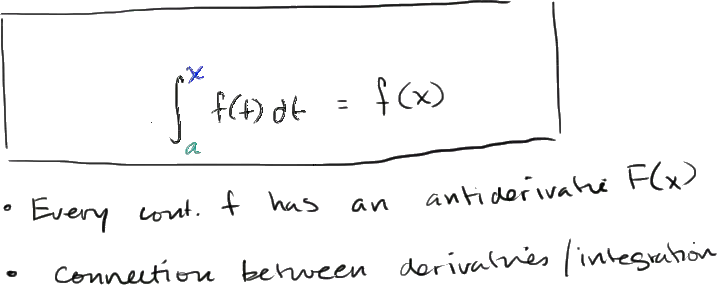 ∫ₐˣ f(t) dt = f(x)
• Every cont. f has an antiderivative F(x)
• connection between derivatives/integration